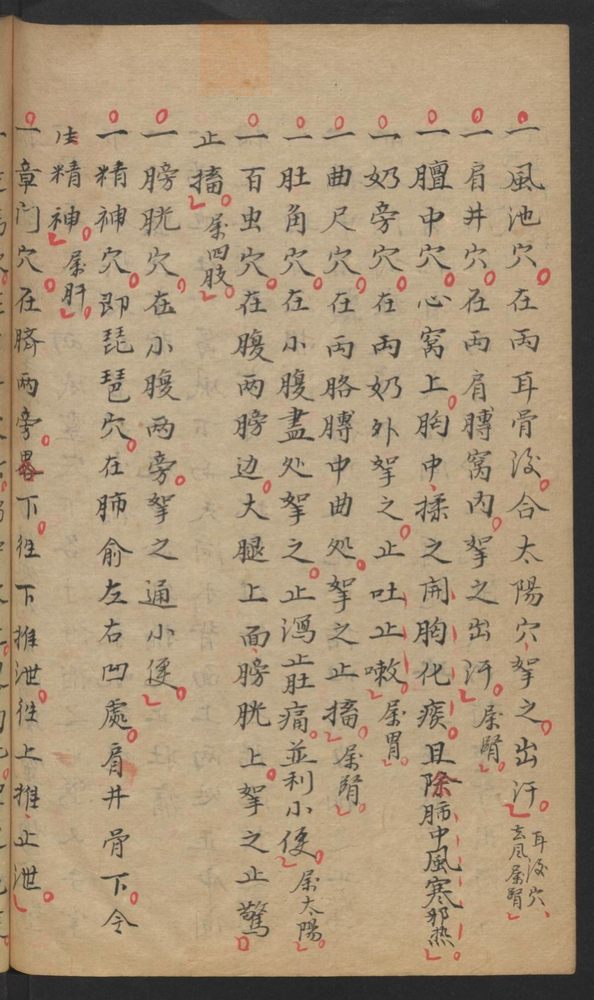 一風池穴在两耳骨後合太陽穴拏之出汗 耳後穴去风屬腎
一肩井穴在两肩膊窝内拏之出汗屬腎
一膻中穴心窝上胸中揉之開胸化痰且除肺中風寒邪热
一奶旁穴在两奶外拏之止吐止嗽屬胃
一曲尺穴在两胳膊中曲处拏之止搐屬腎
一肚角穴在小腹盡处拏之止瀉止肚痛並利小便屬太陽
一百虫穴在腹两膀边大腿上面膀胱上拏之止驚
止搐屬四肢
一膀胱穴在小腹两旁拏之通小便
一精神穴即琵琶穴在肺俞左右凹處肩井骨下令
生精神屬肝
一章门穴在臍两旁畧下往下推泄往上推止泄